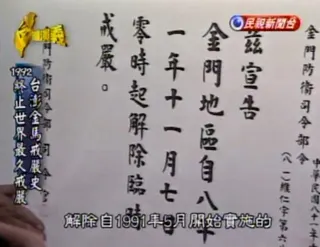 民視新聞台
金門防衛司令部
中華民國八十一年
(八一)維仁字第六
茲宣告
金門地區自八十
一年十一月七
零時起解除臨時
戒嚴。
金門防衛司令部
台澎金馬戒嚴史
1992終止世界最久戒嚴
解除自1991年5月開始實施的